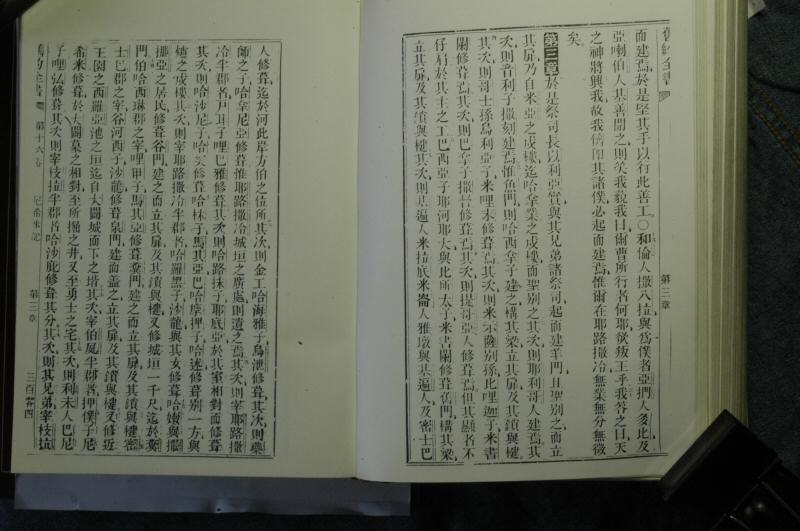 舊約全書
第三章
而建焉於是堅其手以行此善工○和倫人撒八拉與爲僕者亞捫人多比及
亞喇伯人其善聞之則笑我藐我曰爾曹所行者何耶欲叛王乎我答之曰天
之神將興我故我儕卽其諸僕必起而建焉惟爾在耶路撒冷無業無分無徵
矣
第三章 於是祭司長以利亞實與其兄弟諸祭司起而建羊門且聖別之而立
其扉乃自米亞之戍樓迄哈拿業之戍樓而聖別之其次則耶利哥人建焉其
次則音利子撒刻建焉惟魚門則哈西拿子建之構其梁立其扉及其鎖與楗
其次則哥士孫烏利亞子米哩末修葺焉其次則米示薩別孫比哩迦子米書
闌修葺焉其次則巴拿子撒督修葺焉其次則提哥亞人修葺焉但其顯者不
仔肩於其主之工巴西亞子耶河耶大與比所太子米書闌修葺舊門構其梁
立其扉及其鎖與楗其次則基遍人米拉底米崙人雅頓與基遍人及密士巴
人修葺迄於河此岸方伯之位所其次則金工哈海雅子烏泄修葺其次則藥
師之子哈拿尼亞修葺惟耶路撒冷城垣之廣處則遺之焉其次則宰耶路撒
冷半郡者戶珥子哩巴雅修葺其次則哈路抹子耶底亞於其室相對而修葺
其次則哈沙尼子哈突修葺哈林子馬其亞巴哈摩押子哈述修葺別一方與
爐之戍樓其次則宰耶路撒冷半郡者哈羅黑子沙龍與其女修葺哈嫩與撒
挪亞之居民修葺谷門建之而立其扉及其鎖與楗又修城垣一千尺迄於糞
門伯哈西琳郡之宰哩甲子馬其亞修葺糞門建之而立其扉及其鎖與楗密
士巴郡之宰谷河西子沙龍修葺泉門建而蓋之立其扉及其鎖與楗又修近
王園之西羅亞池之垣迄自大闢城而下之塔其次宰伯夙半郡者押僕子尼
希米修葺於大闢墓之相對至所掘之井又至勇士之宅其次則利未人巴尼
子哩弘修葺其次則宰枝拉半郡者哈沙庇修葺其分其次則其兄弟宰枝拉
舊約全書
第十六卷
尼希米記
第三章
三百零四